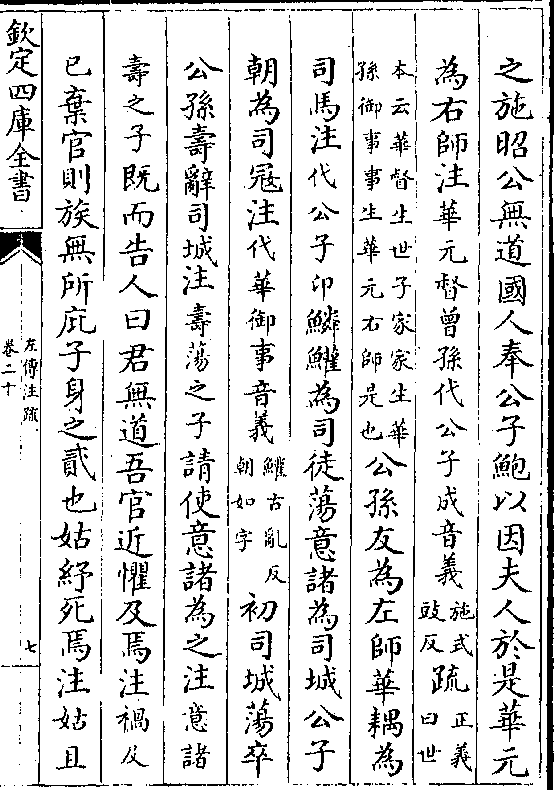 之施昭公無道國人奉公子鮑以因夫人於是華元
為右師注華元督曾孫代公子成音義施式豉反疏正義曰世
本云華督生世子家家生華孫御事事生華元右師是也公孫友為左師華耦為
司馬注代公子卬鱗鱹為司徒蕩意諸為司城公子
朝為司冦注代華御事音義鱹古亂反朝如字初司城蕩卒
公孫壽辭司城注壽蕩之子請使意諸為之注意諸
壽之子既而告人曰君無道吾官近懼及焉注禍及
已棄官則族無所庇子身之貳也姑紓死焉注姑且
欽定四庫全書
左傳注疏
卷二十
七